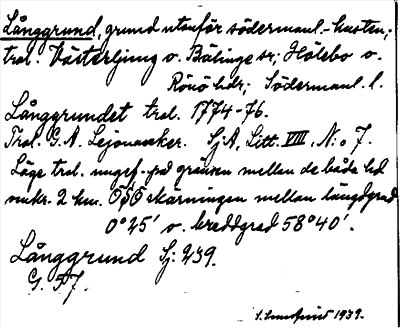 Långgrund, grund utanför södermanl.-kusten;
trol. Västerljung o. Bälinge sr; Hölebo o.
Rönö hdr; Södermanl. l.
Långgrundet trol. 1774-76.
Trol. G. A. Lejonancker. SjA, Litt. VIII, N:o 7.
Läge trol. ungef. på gränsen mellan de båda hd
omkr. 2 km. ÖSÖ skärningen mellan längdgrad
0°25' o. breddgrad 58°40'.
Långgrund Sj: 239.
G. 57.
1939.